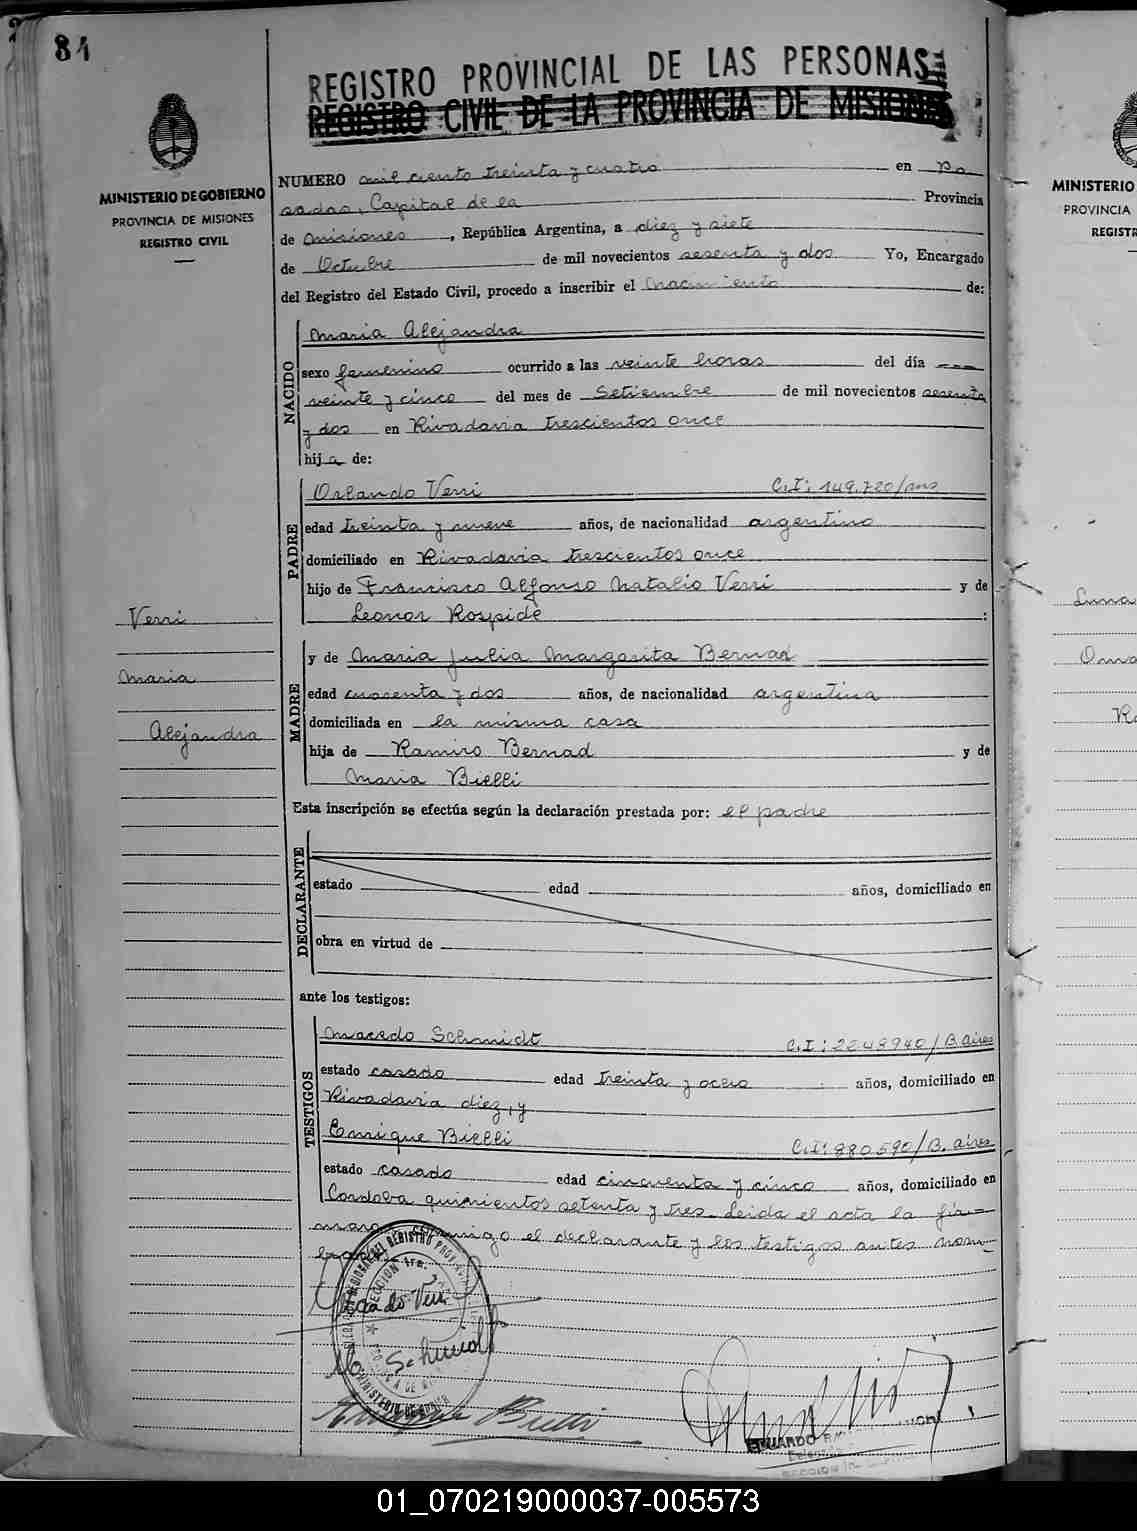 84
REGISTRO PROVINCIAL DE LAS PERSONAS
REGISTRO CIVIL DE LA PROVINCIA DE MISIONES
MINISTERIO DE GOBIERNO
PROVINCIA DE MISIONES
REGISTRO CIVIL
NUMERO mil ciento treinta y cuatro en Po
sadas, Capital de la Provincia
de Misiones, República Argentina, a diez y siete
de Octubre de mil novecientos sesenta y dos Yo, Encargado
del Registro del Estado Civil, procedo a inscribir el Nacimiento de:
NACIDO
Maria Alejandra
sexo femenino ocurrido a las veinte horas del día
veinte y cinco del mes de Setiembre de mil novecientos sesenta
y dos en Rivadavia trescientos once
hija de:
PADRE
Orlando Verri C.I: 149.720/mns
edad treinta y nueve años, de nacionalidad argentino
domiciliado en Rivadavia trescientos once
hijo de Francisco Alfonso Natalio Verri y de
Leonor Rospide:
Verri
Maria
Alejandra
MADRE
y de Maria Julia Margarita Bernad
edad cuarenta y dos años, de nacionalidad argentina
domiciliada en la misma casa
hija de Ramiro Bernad y de
Maria Bielli
Esta inscripción se efectúa según la declaración prestada por: el padre
DECLARANTE
estado edad años, domiciliado en
obra en virtud de
ante los testigos:
TESTIGOS
Macedo Schmidt C.I: 2248940/B. aires
estado casado edad treinta y ocho años, domiciliado en
Rivadavia diez, y
Enrique Bielli C.I: 880.590/B. aires
estado casado edad cincuenta y cinco años, domiciliado en
Cordoba quinientos setenta y tres. Leida el acta la fir-
man conmigo el declarante y los testigos antes nom-
brados
Orlando Verri
Schmidt
Enrique Bielli
EDUARDO
MINISTERIO
PROVINCIA
REGISTR
Luna
Oma
01_070219000037-005573